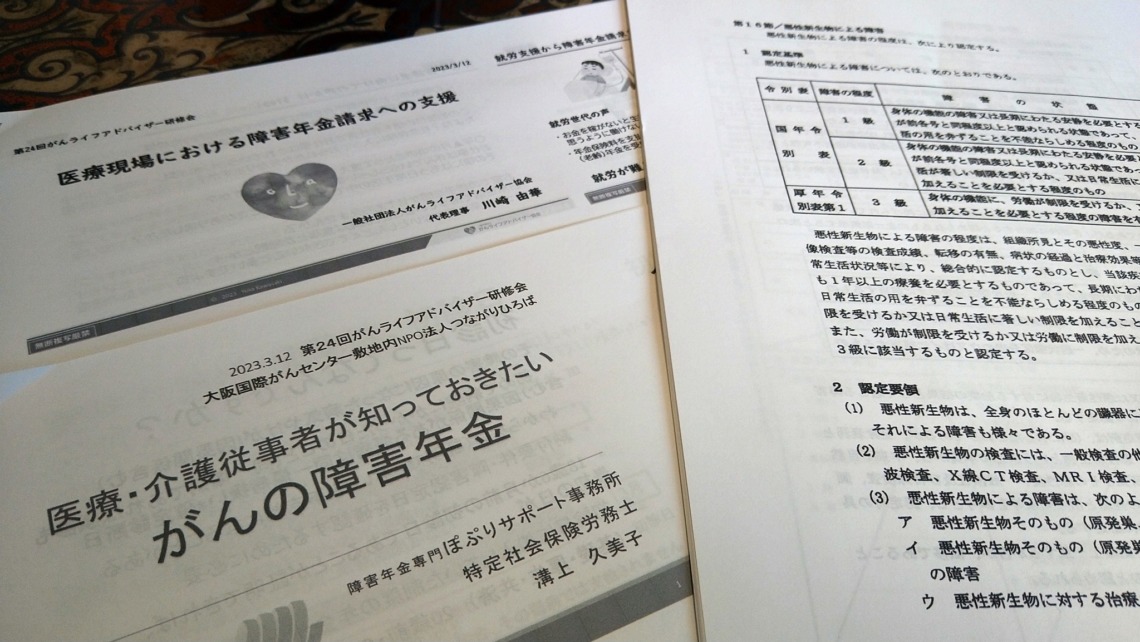 2023/3/12
就労支援から障害年金請求
第24回がんライフアドバイザー研修会
医療現場における障害年金請求への支援
一般社団法人がんライフアドバイザー協会
代表理事 川崎 由華
無断複写厳禁
就労世代の声
・お金を稼がないと生
思うように働けない
・年金保険料を支
(老齢)年金を受
就労が難
2023.3.12 第24回がんライフアドバイザー研修会
大阪国際がんセンター敷地内NPO法人つながりひろば
医療・介護従事者が知っておきたい
がんの障害年金
障害年金専門ぽぷりサポート事務所
特定社会保険労務士
溝上 久美子
1
第16節/悪性新生物による障害
悪性新生物による障害の程度は、次により認定する。
1 認定基準
悪性新生物による障害については、次のとおりである。
令別表 障害の程度 障害の状態
国年令別表
1級
身体の機能の障害又は長期にわたる安静を必要とする
が前各号と同程度以上と認められる状態であって、
活の用を弁ずることを不能ならしめる程度のもの
2級
身体の機能の障害又は長期にわたる安静を必要と
が前各号と同程度以上と認められる状態であっ
活が著しい制限を受けるか、又は日常生活に
加えることを必要とする程度のもの
厚年令
別表第1
3級
身体の機能に、労働が制限を受けるか、
加えることを必要とする程度の障害を
悪性新生物による障害の程度は、組織所見とその悪性度、一
像検査等の検査成績、転移の有無、病状の経過と治療効果等
常生活状況等により、総合的に認定するものとし、当該疾
も1年以上の療養を必要とするものであって、長期にわ
日常生活の用を弁ずることを不能ならしめる程度のもの
限を受けるか又は日常生活に著しい制限を加えること
また、労働が制限を受けるか又は労働に制限を加え
3級に該当するものと認定する。
2 認定要領
(1) 悪性新生物は、全身のほとんどの臓器に
それによる障害も様々である。
(2) 悪性新生物の検査には、一般検査の他
波検査、X線CT検査、MRI検査、
(3) 悪性新生物による障害は、次のよ
ア 悪性新生物そのもの(原発巣
イ 悪性新生物そのもの(原発
の障害
ウ 悪性新生物に対する治療